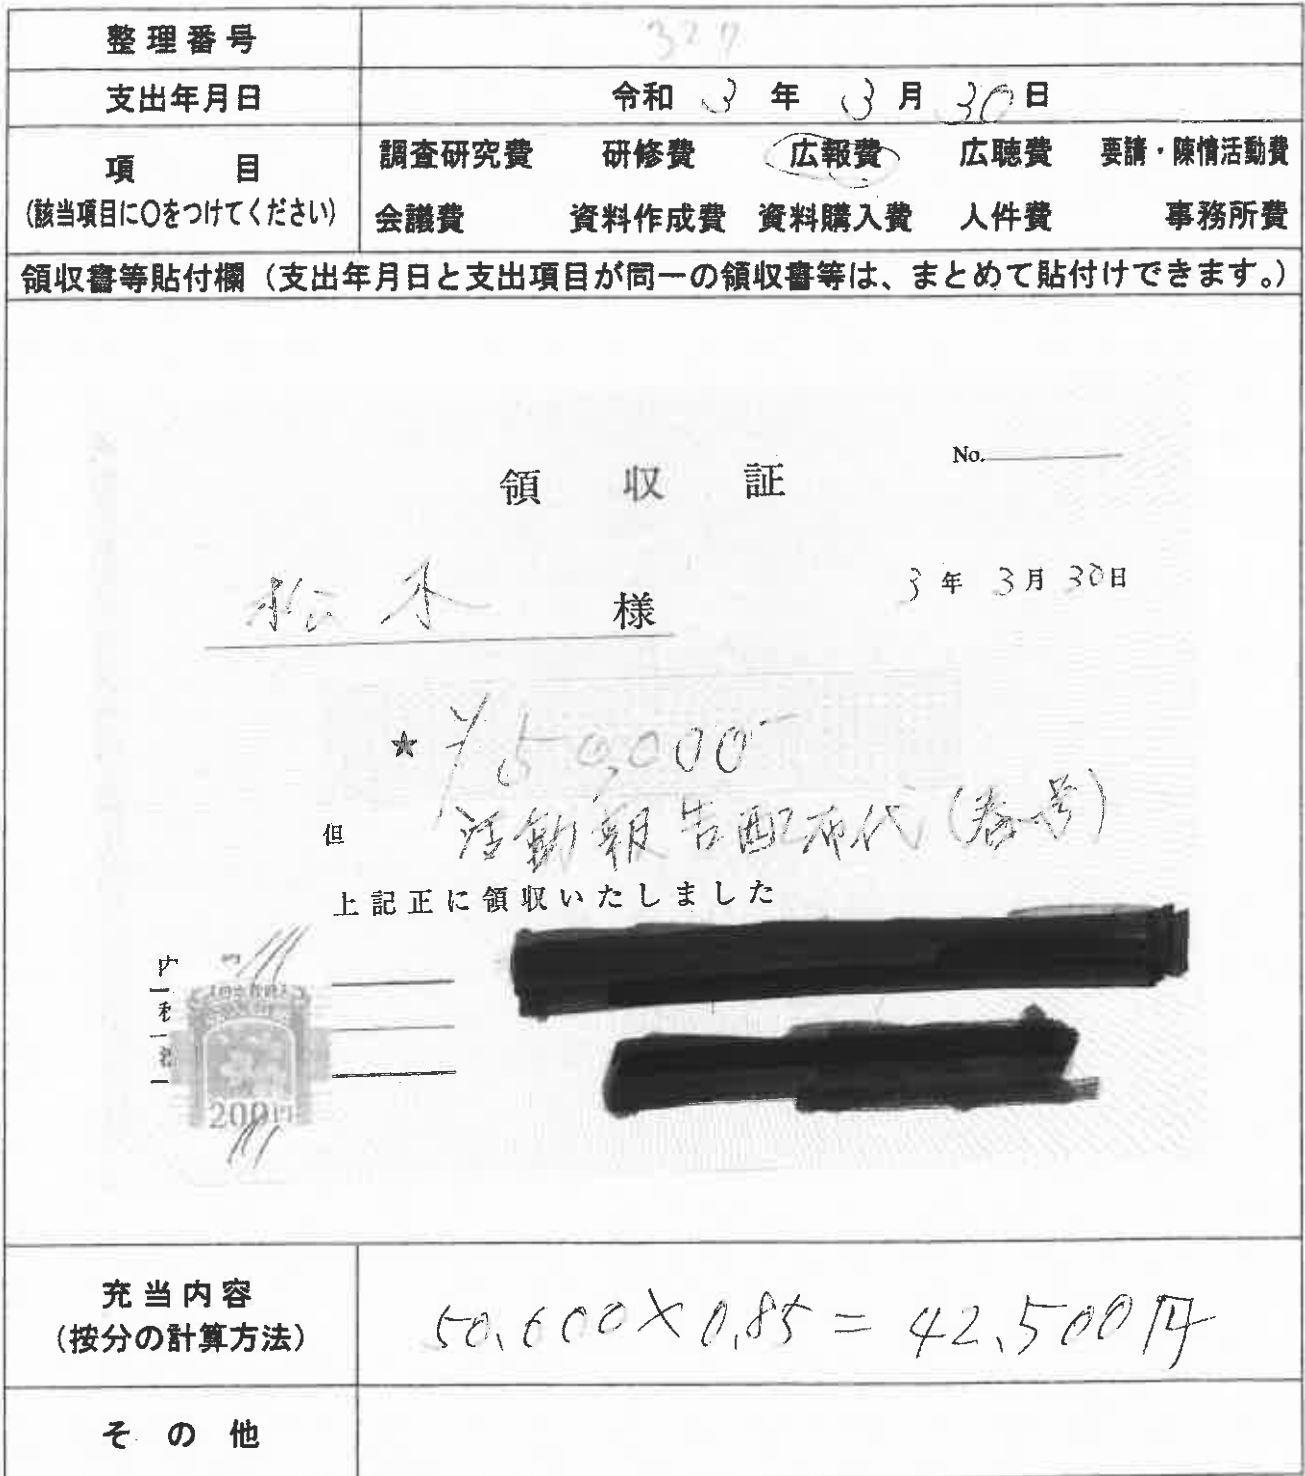 整理番号 327
支出年月日 令和 3 年 3 月 30 日
項 目
(該当項目に〇をつけてください)
調査研究費 研修費 広報費 広聴費 要請・陳情活動費
会議費 資料作成費 資料購入費 人件費 事務所費
領収書等貼付欄(支出年月日と支出項目が同一の領収書等は、まとめて貼付けできます。)
No.
領 収 証
3 年 3 月 30 日
松木 様
★ ¥50,000-
但 活動報告配布代(春号)
上記正に領収いたしました
200円
充当内容
(按分の計算方法)
50,000×0.85=42,500円
その他